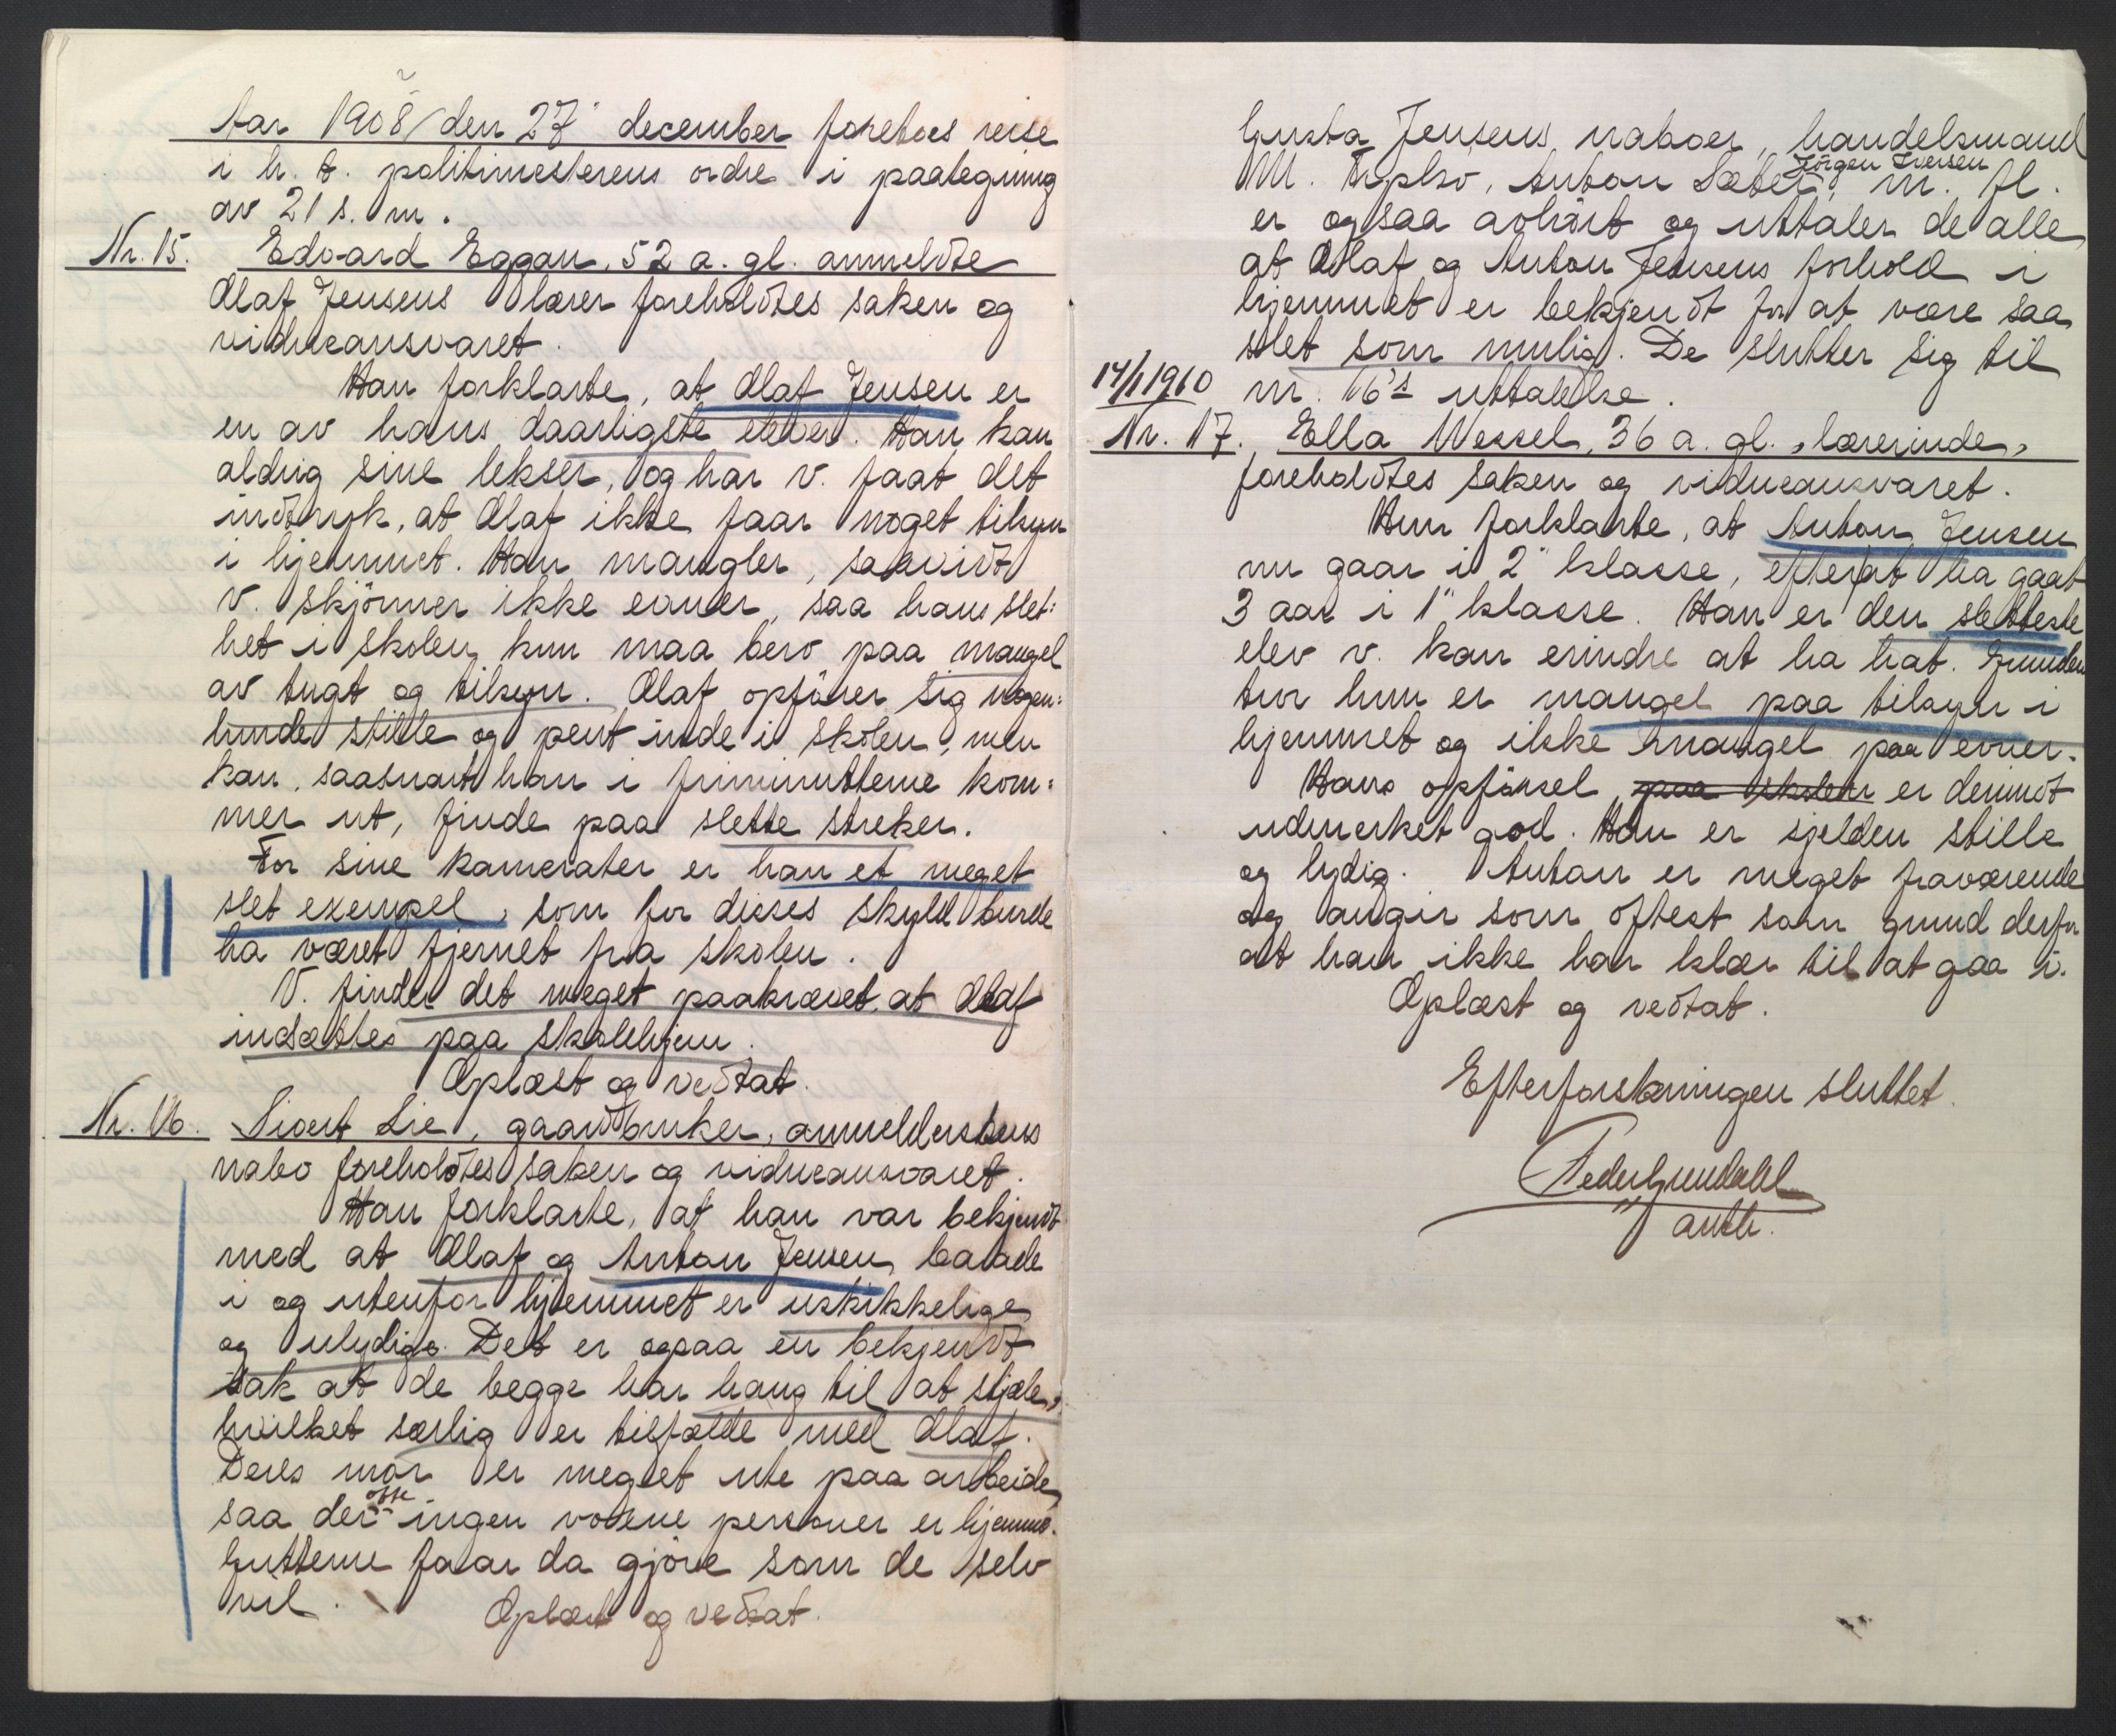 Aar 1908 den 27' december foretoes reise
i h. t. politimesterens ordre i paategning
av 21 s. m.
Nr. 15. Edvard Eggan, 52 a. gl. anmeldte
Olaf Jensens lærer foreholdtes saken og
vidneansvaret.
Han forklarte, at Olaf Jensen er
en av hans daarligste elever. Han kan
aldrig sine lekser, og har v. faat det
indtryk, at Olaf ikke faar noget tilsyn
i hjemmet. Han mangler, saavidt
v. skjönner ikke evner, saa hans slet=
het i skolen kun maa bero paa mangel
av tugt og tilsyn. Olaf opförer sig nogen=
lunde stille og pent inde i skolen, men
kan, saasnart han i friminutterne kom=
mer ut, finde paa slette streker.
For sine kamerater er han et meget
slet exempel, som for disses skyld burde
ha været fjernet fra skolen.
V. finder det meget paakrævet, at Olaf
indsættes paa skolehjem.
Oplæst og vedtat.
Nr. 16. Sivert Lie, gaardbruker, anmelderskens
nabo foreholdtes saken og vidneansvaret.
Han forklarte, at han var bekjendt
med at Olaf og Anton Jensen baade
i og utenfor hjemmet er uskikkelige
og ulydige. Det er ogsaa en bekjendt
sak at de begge har hang til at stjæle,
hvilket særlig er tilfælde med Olaf.
Deres mor er meget ute paa arbeide,
saa der ofte ingen voxne personer er hjemme.
Gutterne faar da gjöre som de selv
vil. Oplæst og vedtat.
Gusta Jensens naboer, handelsmand
M. Anton Sæter, Jörgen Iversen m. fl.
er ogsaa avhört og uttaler de alle
at Olaf og Anton Jensens forhold i
hjemmet er bekjendt for at være saa
slet som mulig. De slutter sig til
nr. 16's uttalelse.
14/1 1910
Nr. 17. Ella Wessel, 36 a. gl., lærerinde,
foreholdtes saken og vidneansvaret.
Hun forklarte, at Anton Jensen
nu gaar i 2" klasse, efterat ha gaat
3 aar i 1" klasse. Han er den sletteste
elev v. kan erindre at ha hat. Grunden
tror hun er mangel paa tilsyn i
hjemmet og ikke mangel paa evner.
Hans opförsel paa skolen er derimot
udmerket god. Han er sjelden stille
og lydig. Anton er meget fraværende
og angir som oftest som grund derfor
at han ikke har klær til at gaa i.
Oplæst og vedtat.
Efterforskningen sluttet.
Peder Grendahl